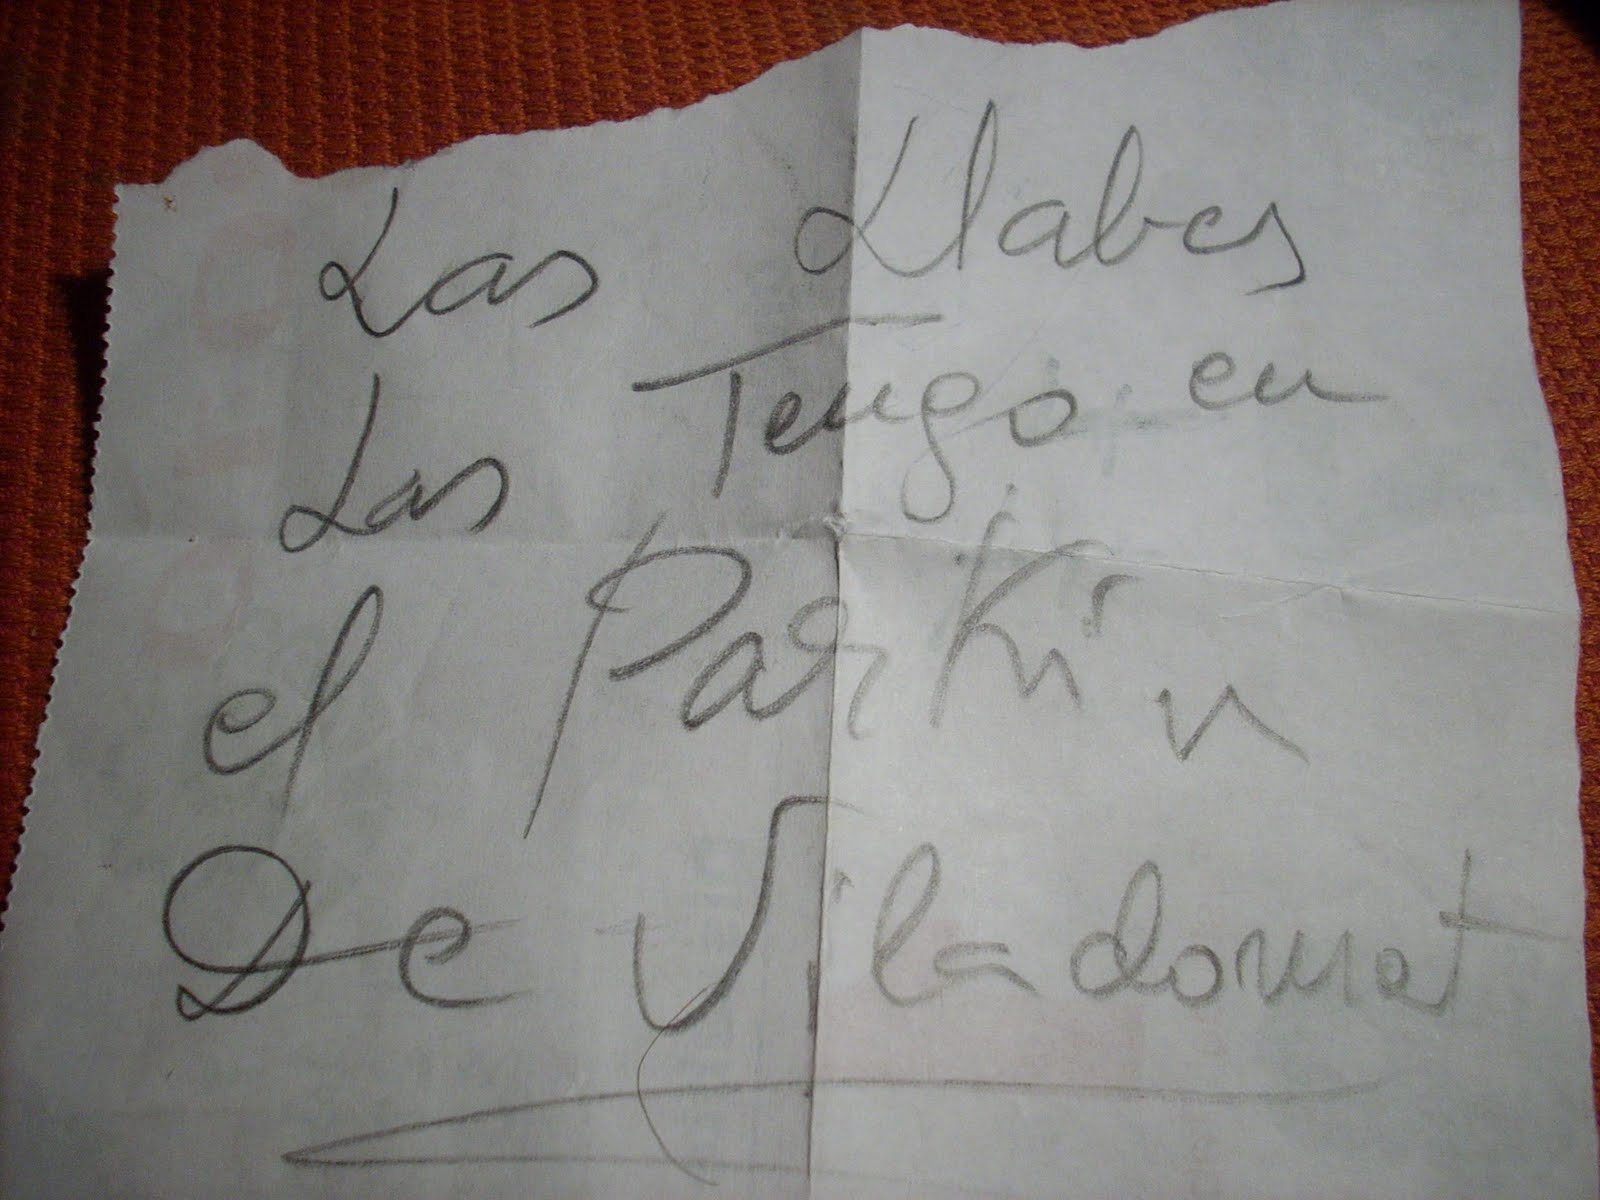 Las Llabes
Las Tengo en
el Parkin
De Viladomat